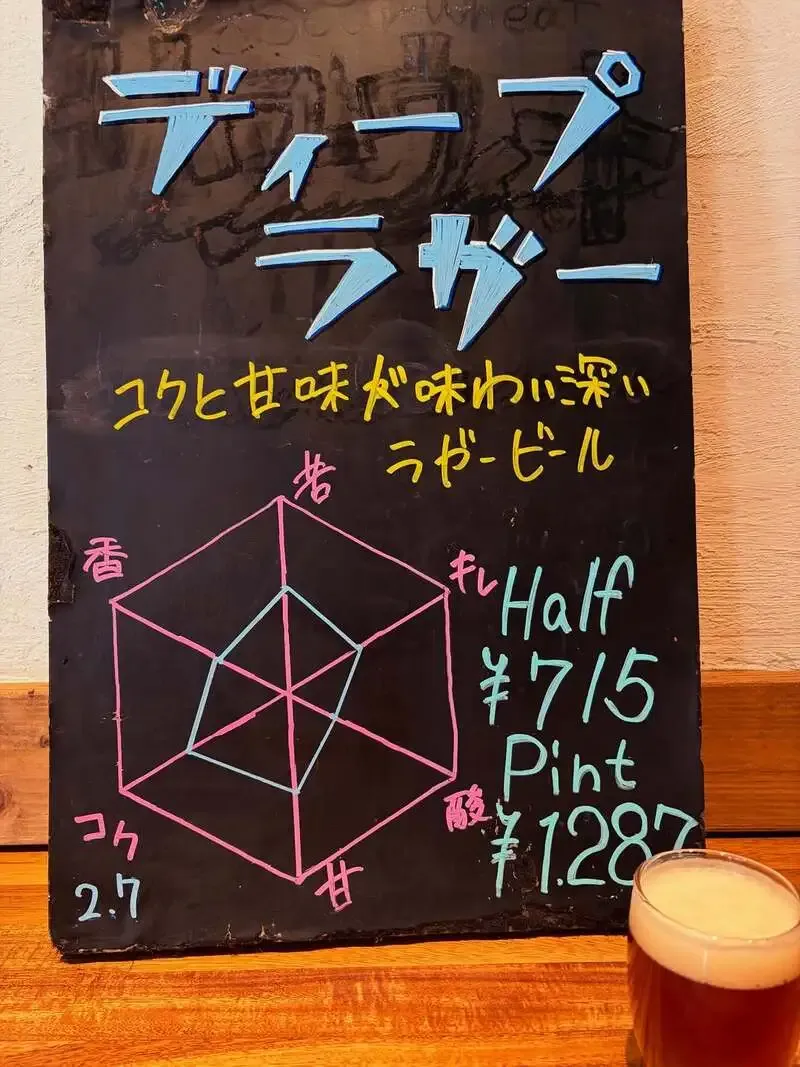 ディープ
ラガー
コクと甘味が味わい深い
ラガービール
苦
香
キレ
コク
酸
甘
2.7
Half
¥715
Pint
¥1.287